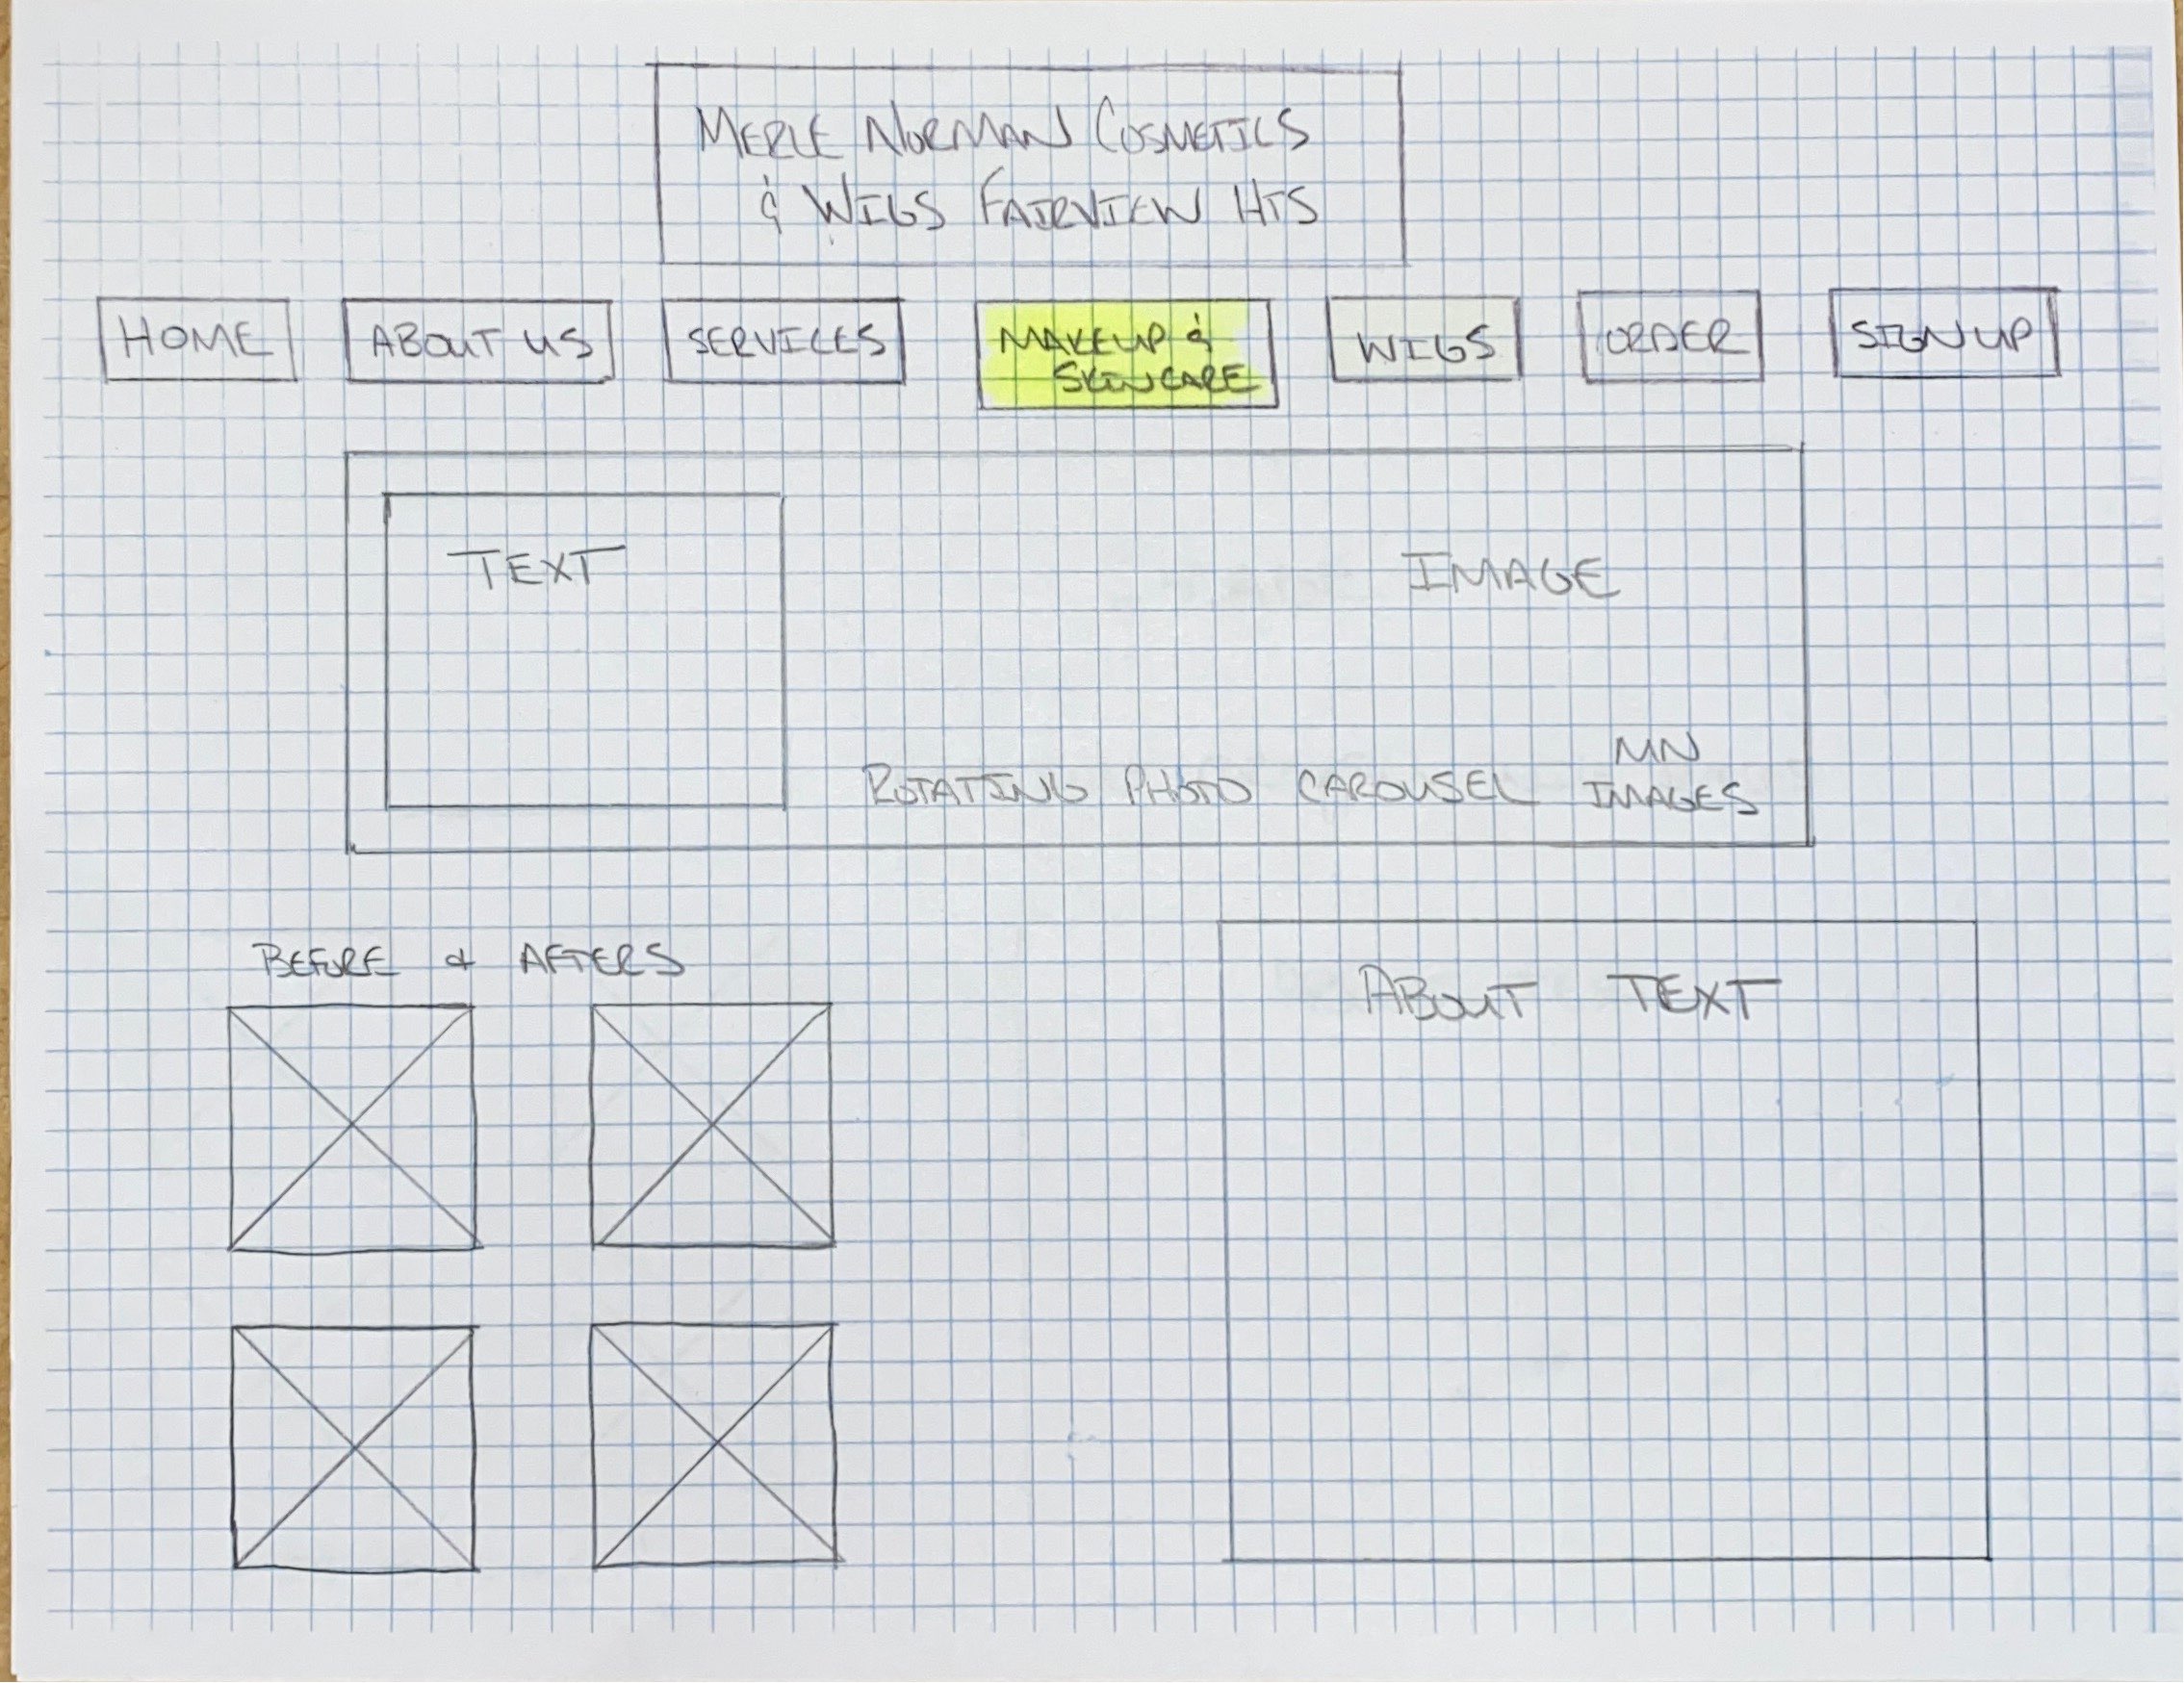 MERLE NORMAN COSMETICS
& WIGS FAIRVIEW HTS
HOME
ABOUT US
SERVICES
MAKEUP &
SKINCARE
WIGS
ORDER
SIGN UP
TEXT
IMAGE
ROTATING PHOTO CAROUSEL MN
IMAGES
BEFORE & AFTERS
ABOUT TEXT